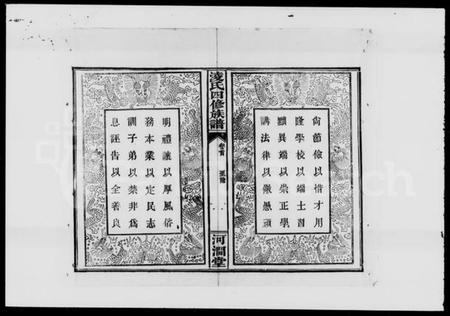 尚節儉以惜才用
隆學校以端士習
黜異端以崇正學
講法律以儆愚頑
凌氏四修族譜
卷首
河澗堂
明禮讓以厚風俗
務本業以定民志
訓子弟以禁非為
息誣告以全善良